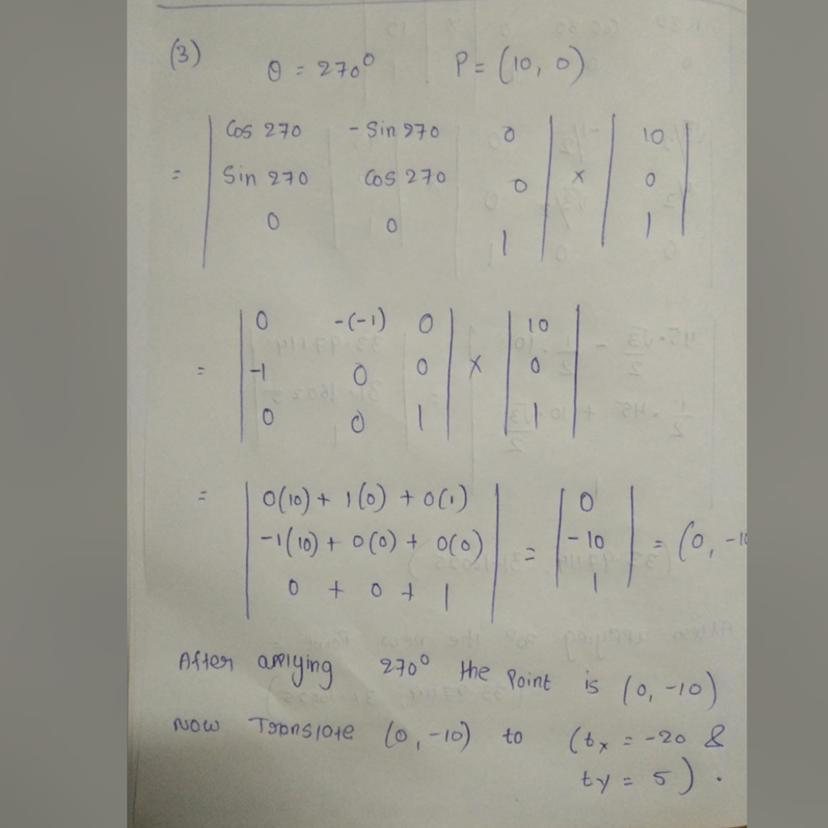 (3) θ = 270° P = (10, 0)
= | Cos 270 -Sin 270 0 | × | 10 |
| Sin 270 Cos 270 0 | | 0 |
| 0 0 1 | | 1 |
= | 0 -(-1) 0 | × | 10 |
| -1 0 0 | | 0 |
| 0 0 1 | | 1 |
= | 0(10) + 1(0) + 0(1) | = | 0 | = (0, -10
| -1(10) + 0(0) + 0(0) | | -10 |
| 0 + 0 + 1 | | 1 |
After applying 270° the Point is (0, -10)
Now Translate (0, -10) to (tx = -20 &
ty = 5).